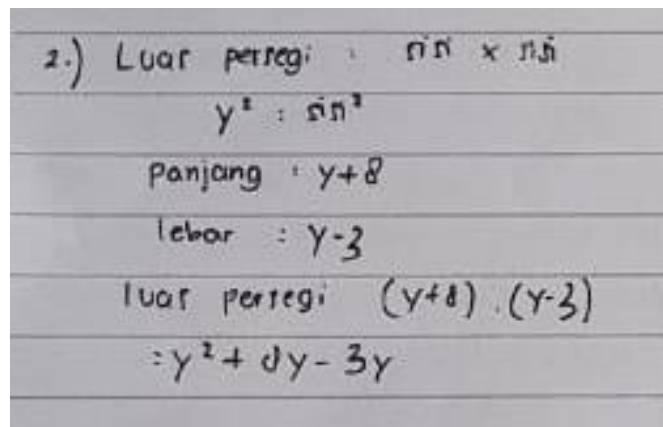 2.) Luas persegi : sisi x sisi
y² : sisi²
panjang : y+8
lebar : y-3
luas persegi (y+8).(y-3)
:y²+8y-3y